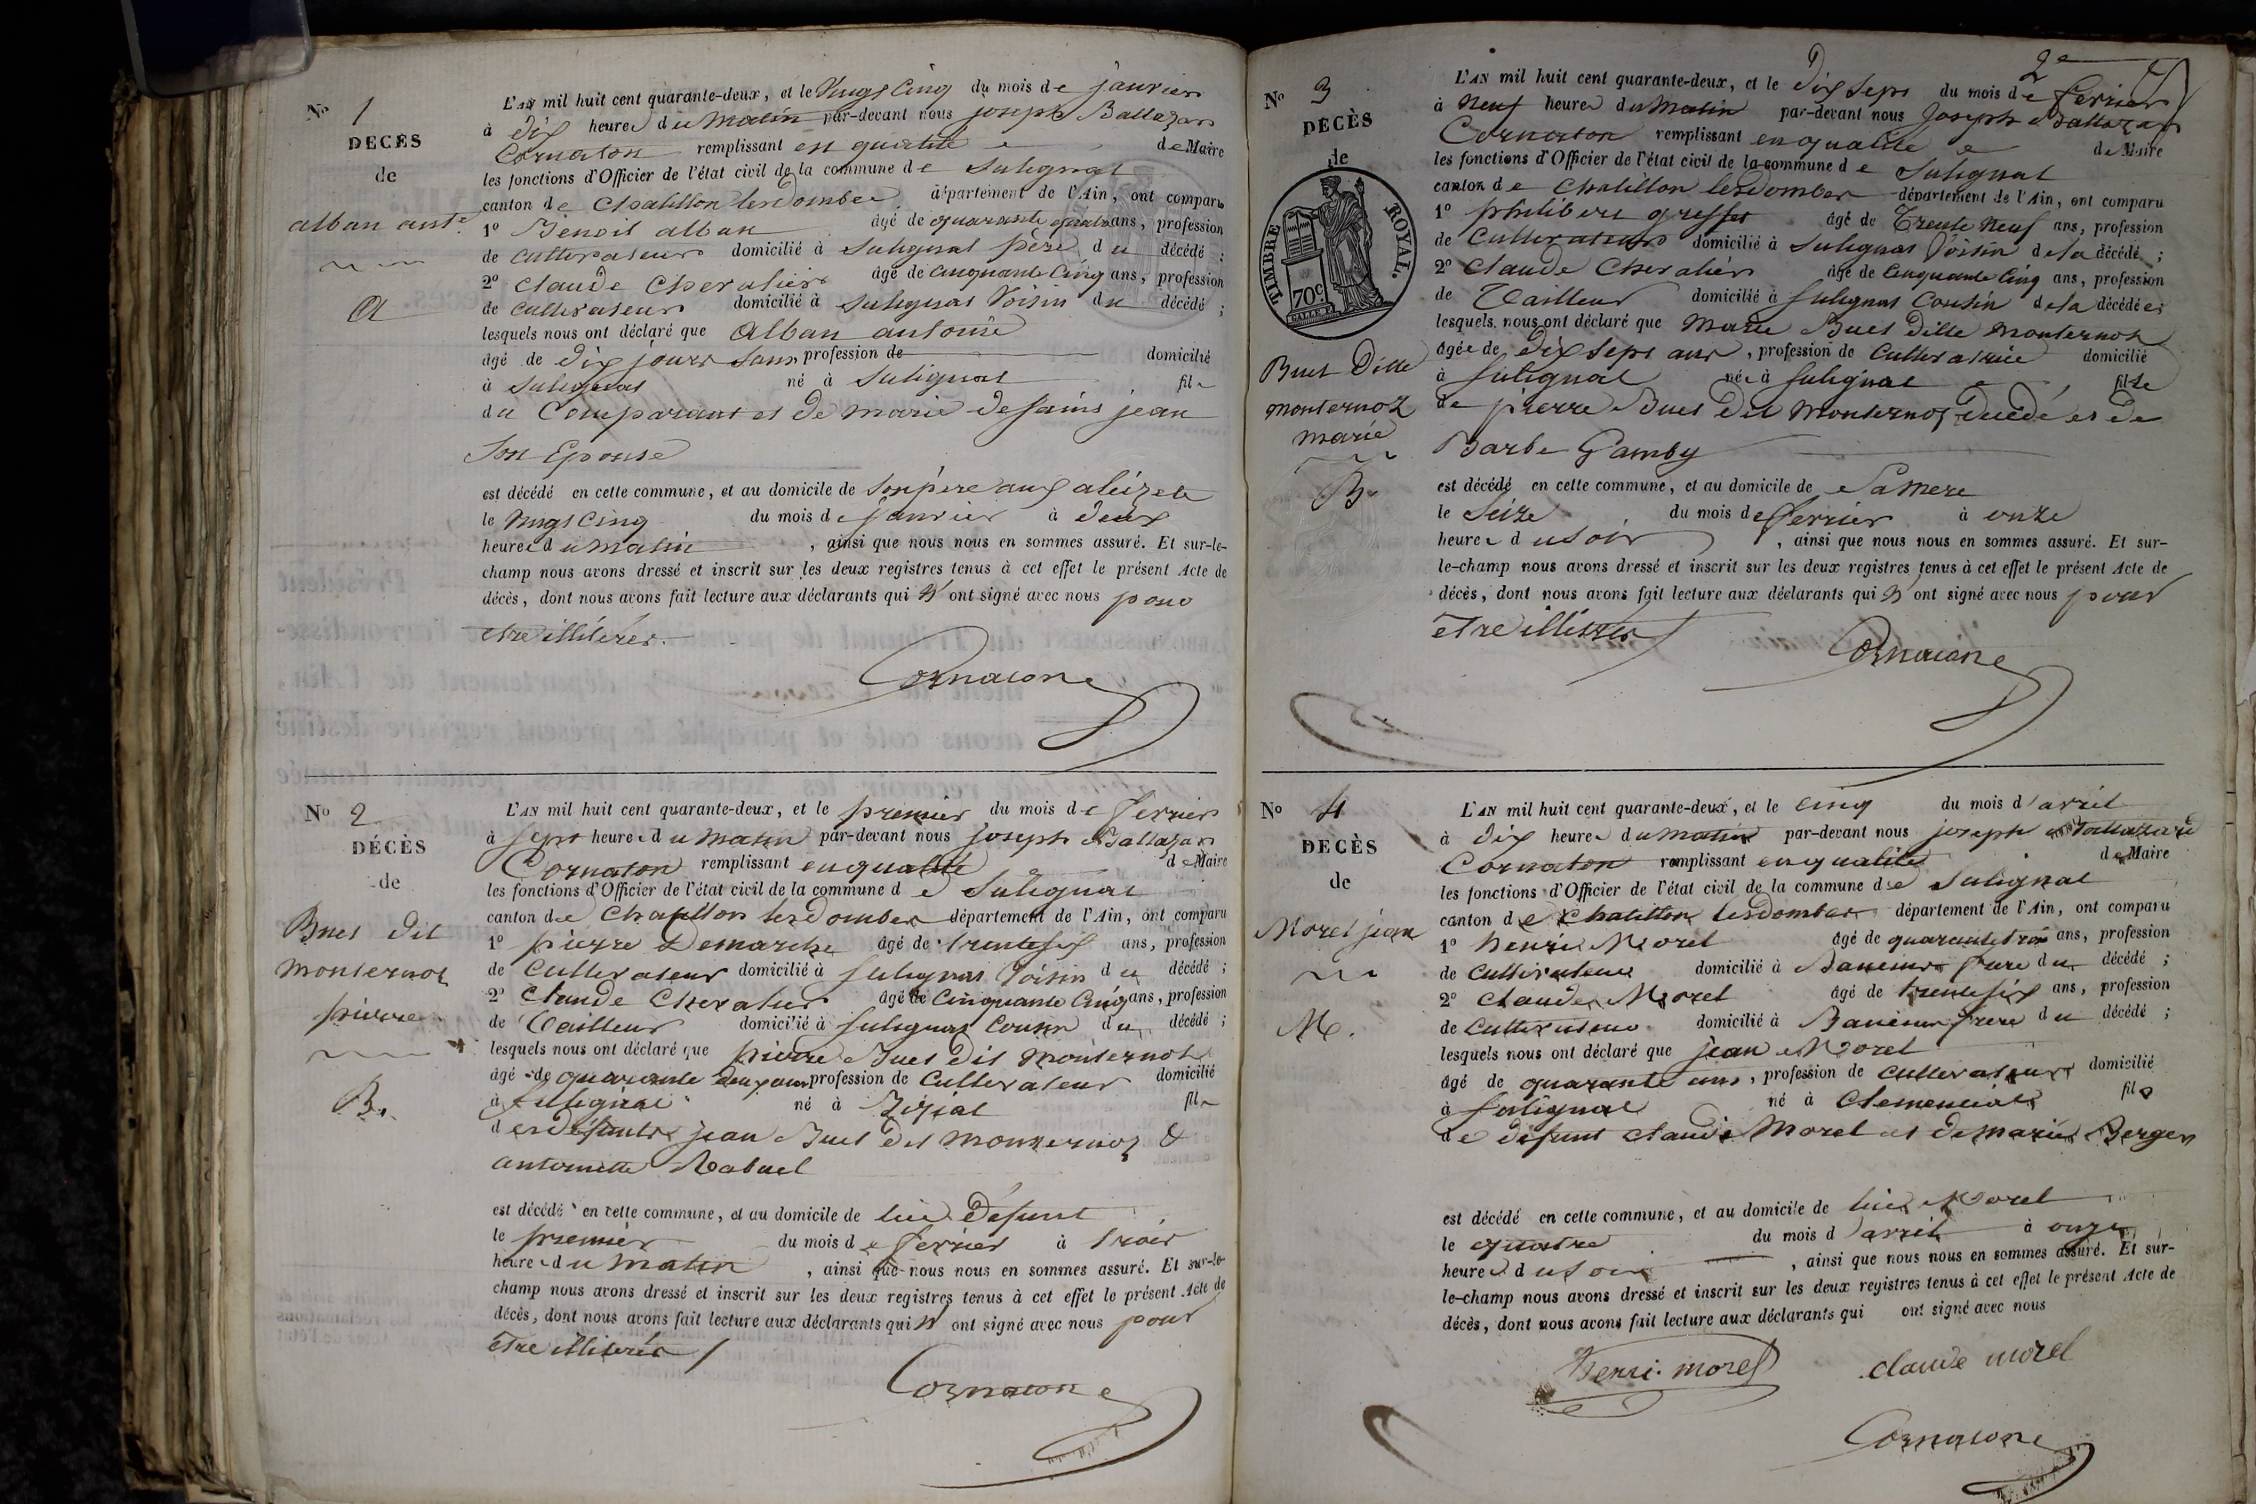 N° 1
DECÈS
de
alban ant.e
a
L'AN mil huit cent quarante-deux, et le vingt cinq du mois de janvier
à dix heures du matin par-devant nous joseph Baltazar
Cornaton remplissant en qualité de Maire
les fonctions d'Officier de l'état civil de la commune de Sulignat
canton de Chatillon les dombes département de l'Ain, ont comparu
1° Benoit alban âgé de quarante quatre ans, profession
de cultivateur domicilié à Sulignat père du décédé ;
2° Claude Chevalier âgé de cinquante cinq ans, profession
de cultivateur domicilié à Sulignat voisin du décédé ;
lesquels nous ont déclaré que alban antoine
âgé de dix jours sans profession de domicilié
à Sulignat né à Sulignat fils
du Comparant et de marie desaint jean
Son Epouse
est décédé en cette commune, et au domicile de son père
le vingt cinq du mois de janvier à deux
heures du matin, ainsi que nous nous en sommes assuré. Et sur-le-
champ nous avons dressé et inscrit sur les deux registres tenus à cet effet le présent Acte de
décès, dont nous avons fait lecture aux déclarants qui n'ont signé avec nous pour
etre illitérés.
Cornatone
N° 2
DÉCÈS
de
Buet dit
monternoz
pierre
B.
L'AN mil huit cent quarante-deux, et le premier du mois de ferrier
à sept heures du matin par-devant nous joseph Baltazar
Cornaton remplissant en qualité de Maire
les fonctions d'Officier de l'état civil de la commune de Sulignat
canton de Chatillon les dombes département de l'Ain, ont comparu
1° pierre Demarche âgé de trente six ans, profession
de Cultivateur domicilié à Sulignat voisin du décédé ;
2° Claude Chevalier âgé de cinquante cinq ans, profession
de Tailleur domicilié à Sulignat Cousin du décédé ;
lesquels nous ont déclaré que pierre Buet dit monternoz
âgé de quarante deux ans profession de Cultivateur domicilié
à Sulignat né à fils
des défunts jean Buet dit monternoz &
antoinette Rabuel
est décédé en cette commune, et au domicile de lui défunt
le premier du mois de ferrier à trois
heures du matin, ainsi que nous nous en sommes assuré. Et sur-le-
champ nous avons dressé et inscrit sur les deux registres tenus à cet effet le présent Acte de
décès, dont nous avons fait lecture aux déclarants qui n'ont signé avec nous pour
etre illitérés
Cornatone
2e
N° 3
DÉCÈS
de
TIMBRE ROYAL.
70c.
Buet Ditte
monternoz
marie
B.
L'AN mil huit cent quarante-deux, et le dix sept du mois de ferrier
à neuf heures du matin par-devant nous Joseph Baltazar
Cornaton remplissant en qualité de Maire
les fonctions d'Officier de l'état civil de la commune de Sulignat
canton de Chatillon les dombes département de l'Ain, ont comparu
1° philibert greffet âgé de trente neuf ans, profession
de Cultivateur domicilié à Sulignat voisin de la décédé ;
2° Claude Chevalier âgé de cinquante cinq ans, profession
de Tailleur domicilié à Sulignat Cousin de la décédée ;
lesquels nous ont déclaré que marie Buet ditte monternoz
âgée de dix sept ans, profession de Cultivatrice domicilié
à Sulignat née à Sulignat fille
de pierre Buet dit monternoz décédé et de
Barbe Gamby
est décédé en cette commune, et au domicile de Sa mere
le Seize du mois de ferrier à onze
heures du soir, ainsi que nous nous en sommes assuré. Et sur-
le-champ nous avons dressé et inscrit sur les deux registres tenus à cet effet le présent Acte de
décès, dont nous avons fait lecture aux déclarants qui n'ont signé avec nous pour
etre illitérés
Cornatone
N° 4
DECÈS
de
Morel jean
M.
L'AN mil huit cent quarante-deux, et le cinq du mois d'avril
à dix heures du matin par-devant nous joseph
Cornaton remplissant en qualité de Maire
les fonctions d'Officier de l'état civil de la commune de Sulignat
canton de Chatillon les dombes département de l'Ain, ont comparu
1° henri Morel âgé de quarante trois ans, profession
de cultivateur domicilié à Baneins frere du décédé ;
2° Claude Morel âgé de trente six ans, profession
de cultivateur domicilié à Baneins frere du décédé ;
lesquels nous ont déclaré que jean Morel
âgé de quarante ans, profession de cultivateur domicilié
à Sulignat né à Clemenciat fils
de défunt claude Morel et de marie Berger
est décédé en cette commune, et au domicile de lui Morel
le quatre du mois d'avril à onze
heures du soir, ainsi que nous nous en sommes assuré. Et sur-
le-champ nous avons dressé et inscrit sur les deux registres tenus à cet effet le présent Acte de
décès, dont nous avons fait lecture aux déclarants qui ont signé avec nous
henri morel claude morel
Cornatone